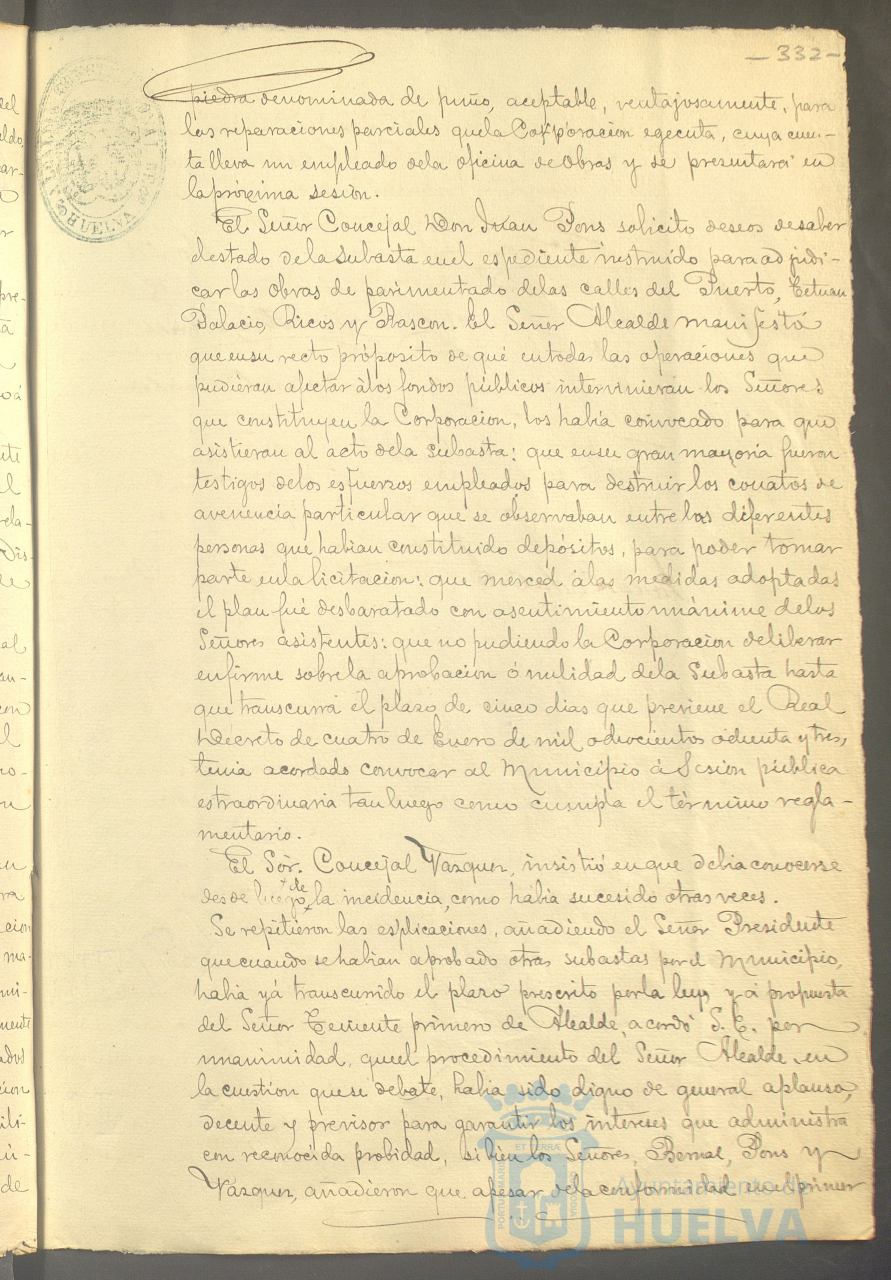 -332-
piedra denominada de puño, aceptable, ventajosamente, para
las reparaciones parciales que la Corporacion egecuta, cuya cuen-
ta lleva un empleado dela oficina de Obras y se presentará en
la proxima sesion.
El Señor Concejal Don Juan Pons solicitó deseos de saber
el estado dela subasta en el espediente instruido para adjudi-
car las obras de parimentado delas calles del Puerto, Tetuan
Palacio, Ricos y Rascon. El Señor Alcalde manifestó
que en su recto próposito de qué en todas las operaciones que
pudieran afectar á los fondos públicos intervinieran los Señores
que constituyen la Corporacion, los habia convocado para que
asistieran al acto dela subasta: que en su gran mayoria fueron
testigos delos esfuerzos empleados para destruir los conatos de
avenencia particular que se observaban entre las diferentes
personas que habian constituido depósitos, para poder tomar
parte en la licitacion: que merced á las medidas adoptadas
el plan fué desbaratado con asentimiento unánime delos
Señores asistentes: que no pudiendo la Corporacion deliberar
en firme sobre la aprobacion ó nulidad dela Subasta hasta
que transcurra el plazo de cinco dias que previene el Real
Decreto de cuatro de Enero de mil ochocientos ochenta y tres,
tenia acordado convocar al Municipio á Sesion pública
estraordinaria tan luego como cumpla el término regla-
mentario.
El Sór. Concejal Vazquez, insistió en que debia conocerse
desde luego de la incidencia, como habia sucesido otras veces.
Se repitieron las esplicaciones, añadiendo el Señor Presidente
que cuando se habian aprobado otras subastas por el Municipio,
habia yá transcurrido el plazo prescrito por la ley, y á propuesta
del Señor Teniente primero de Alcalde, acordó S. E. por
unanimidad, que el procedimiento del Señor Alcalde en
la cuestion que se debate, habia sido digno de general aplauso,
decente y previsor para garantir los intereses que administra
con reconocida probidad, si bien los Señores, Bernal, Pons y
Vazquez, añadieron que apesar dela conformidad en el primer
HUELVA
Ayuntamiento de
HUELVA